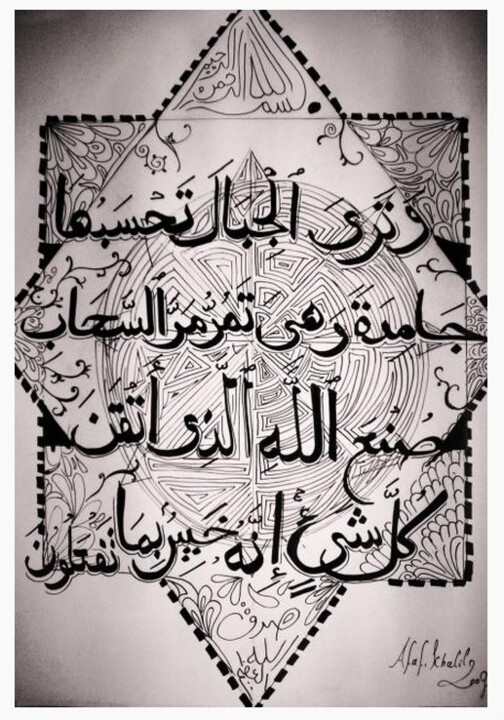 بسم الله الرحمن الرحيم
وَتَرَى الْجِبَالَ تَحْسَبُهَا
جَامِدَةً وَهِيَ تَمُرُّ مَرَّ السَّحَابِ
صُنْعَ اللَّهِ الَّذِي أَتْقَنَ
كُلَّ شَيْءٍ إِنَّهُ خَبِيرٌ بِمَا تَفْعَلُونَ
صدق
الله العظيم
Afaf.khalil
2009